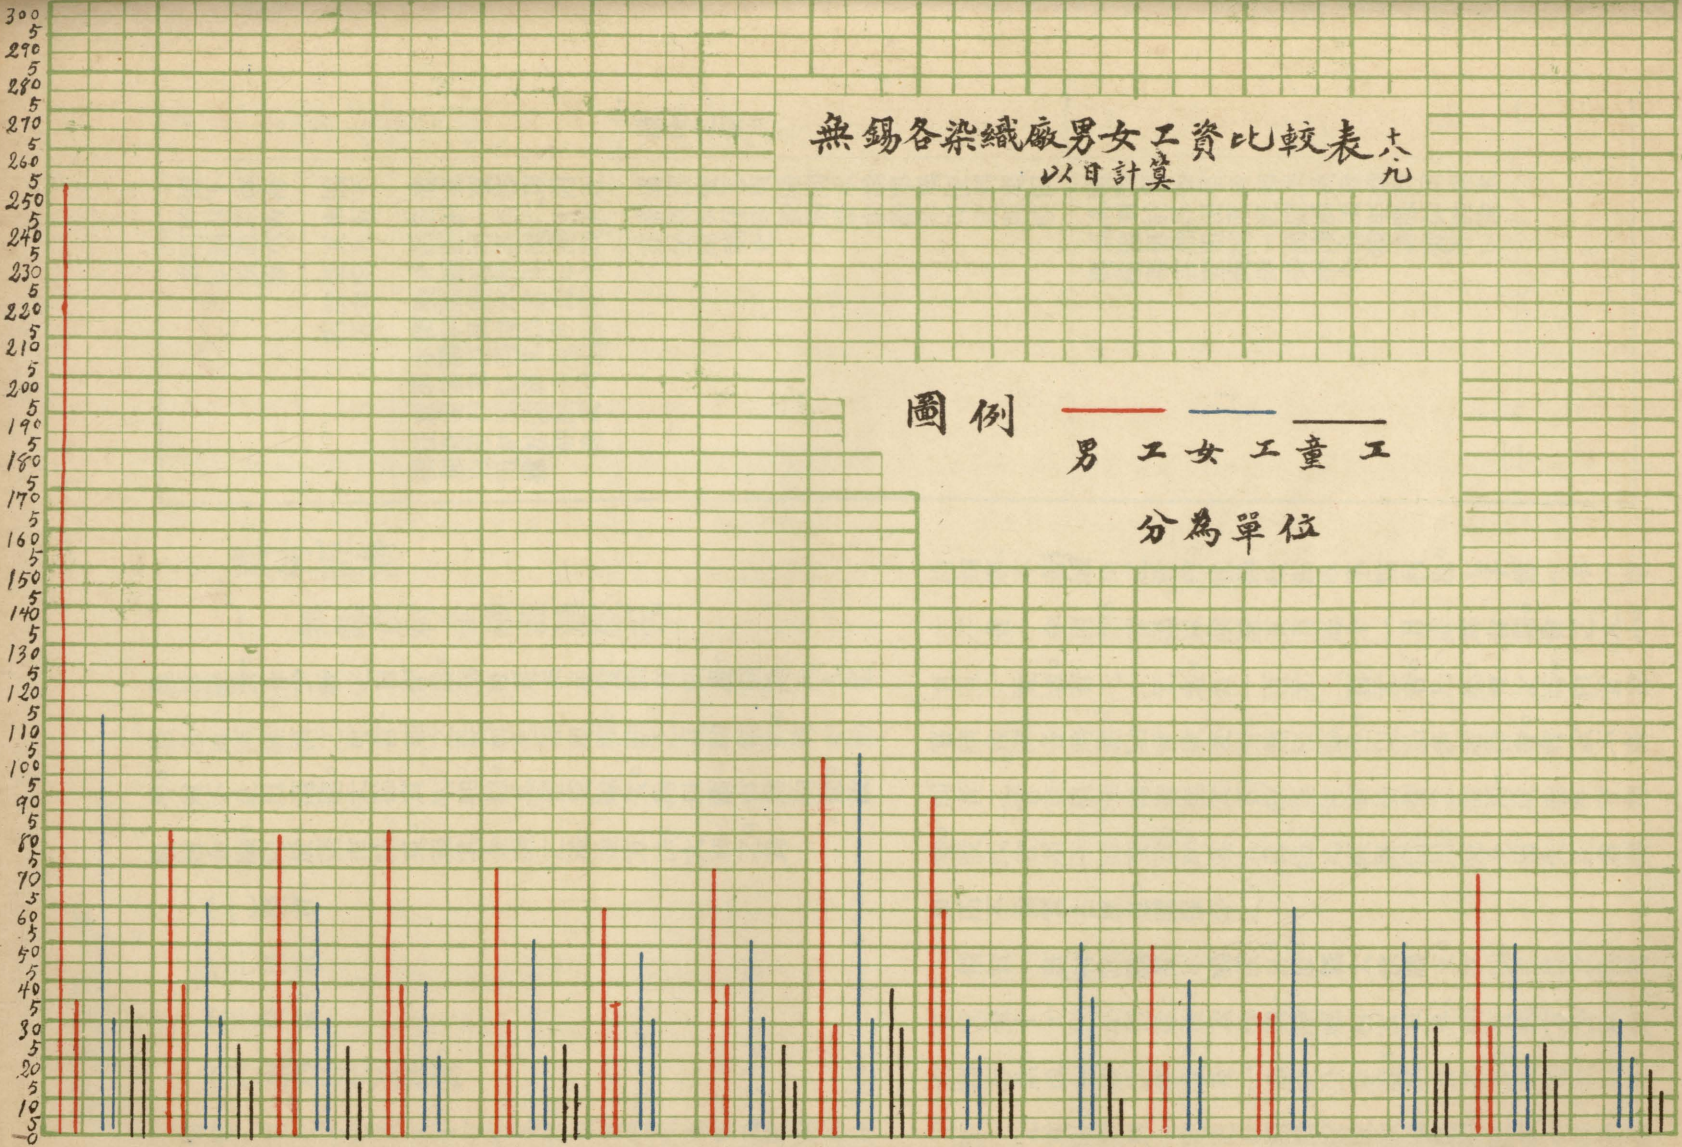 無錫各染織廠男女工資比較表 十八.九
以日計算
圖例
男工 女工 童工
分為單位
300
5
290
5
280
5
270
5
260
5
250
5
240
5
230
5
220
5
210
5
200
5
190
5
180
5
170
5
160
5
150
5
140
5
130
5
120
5
110
5
100
5
90
5
80
5
70
5
60
5
50
5
40
5
30
5
20
5
10
5
0